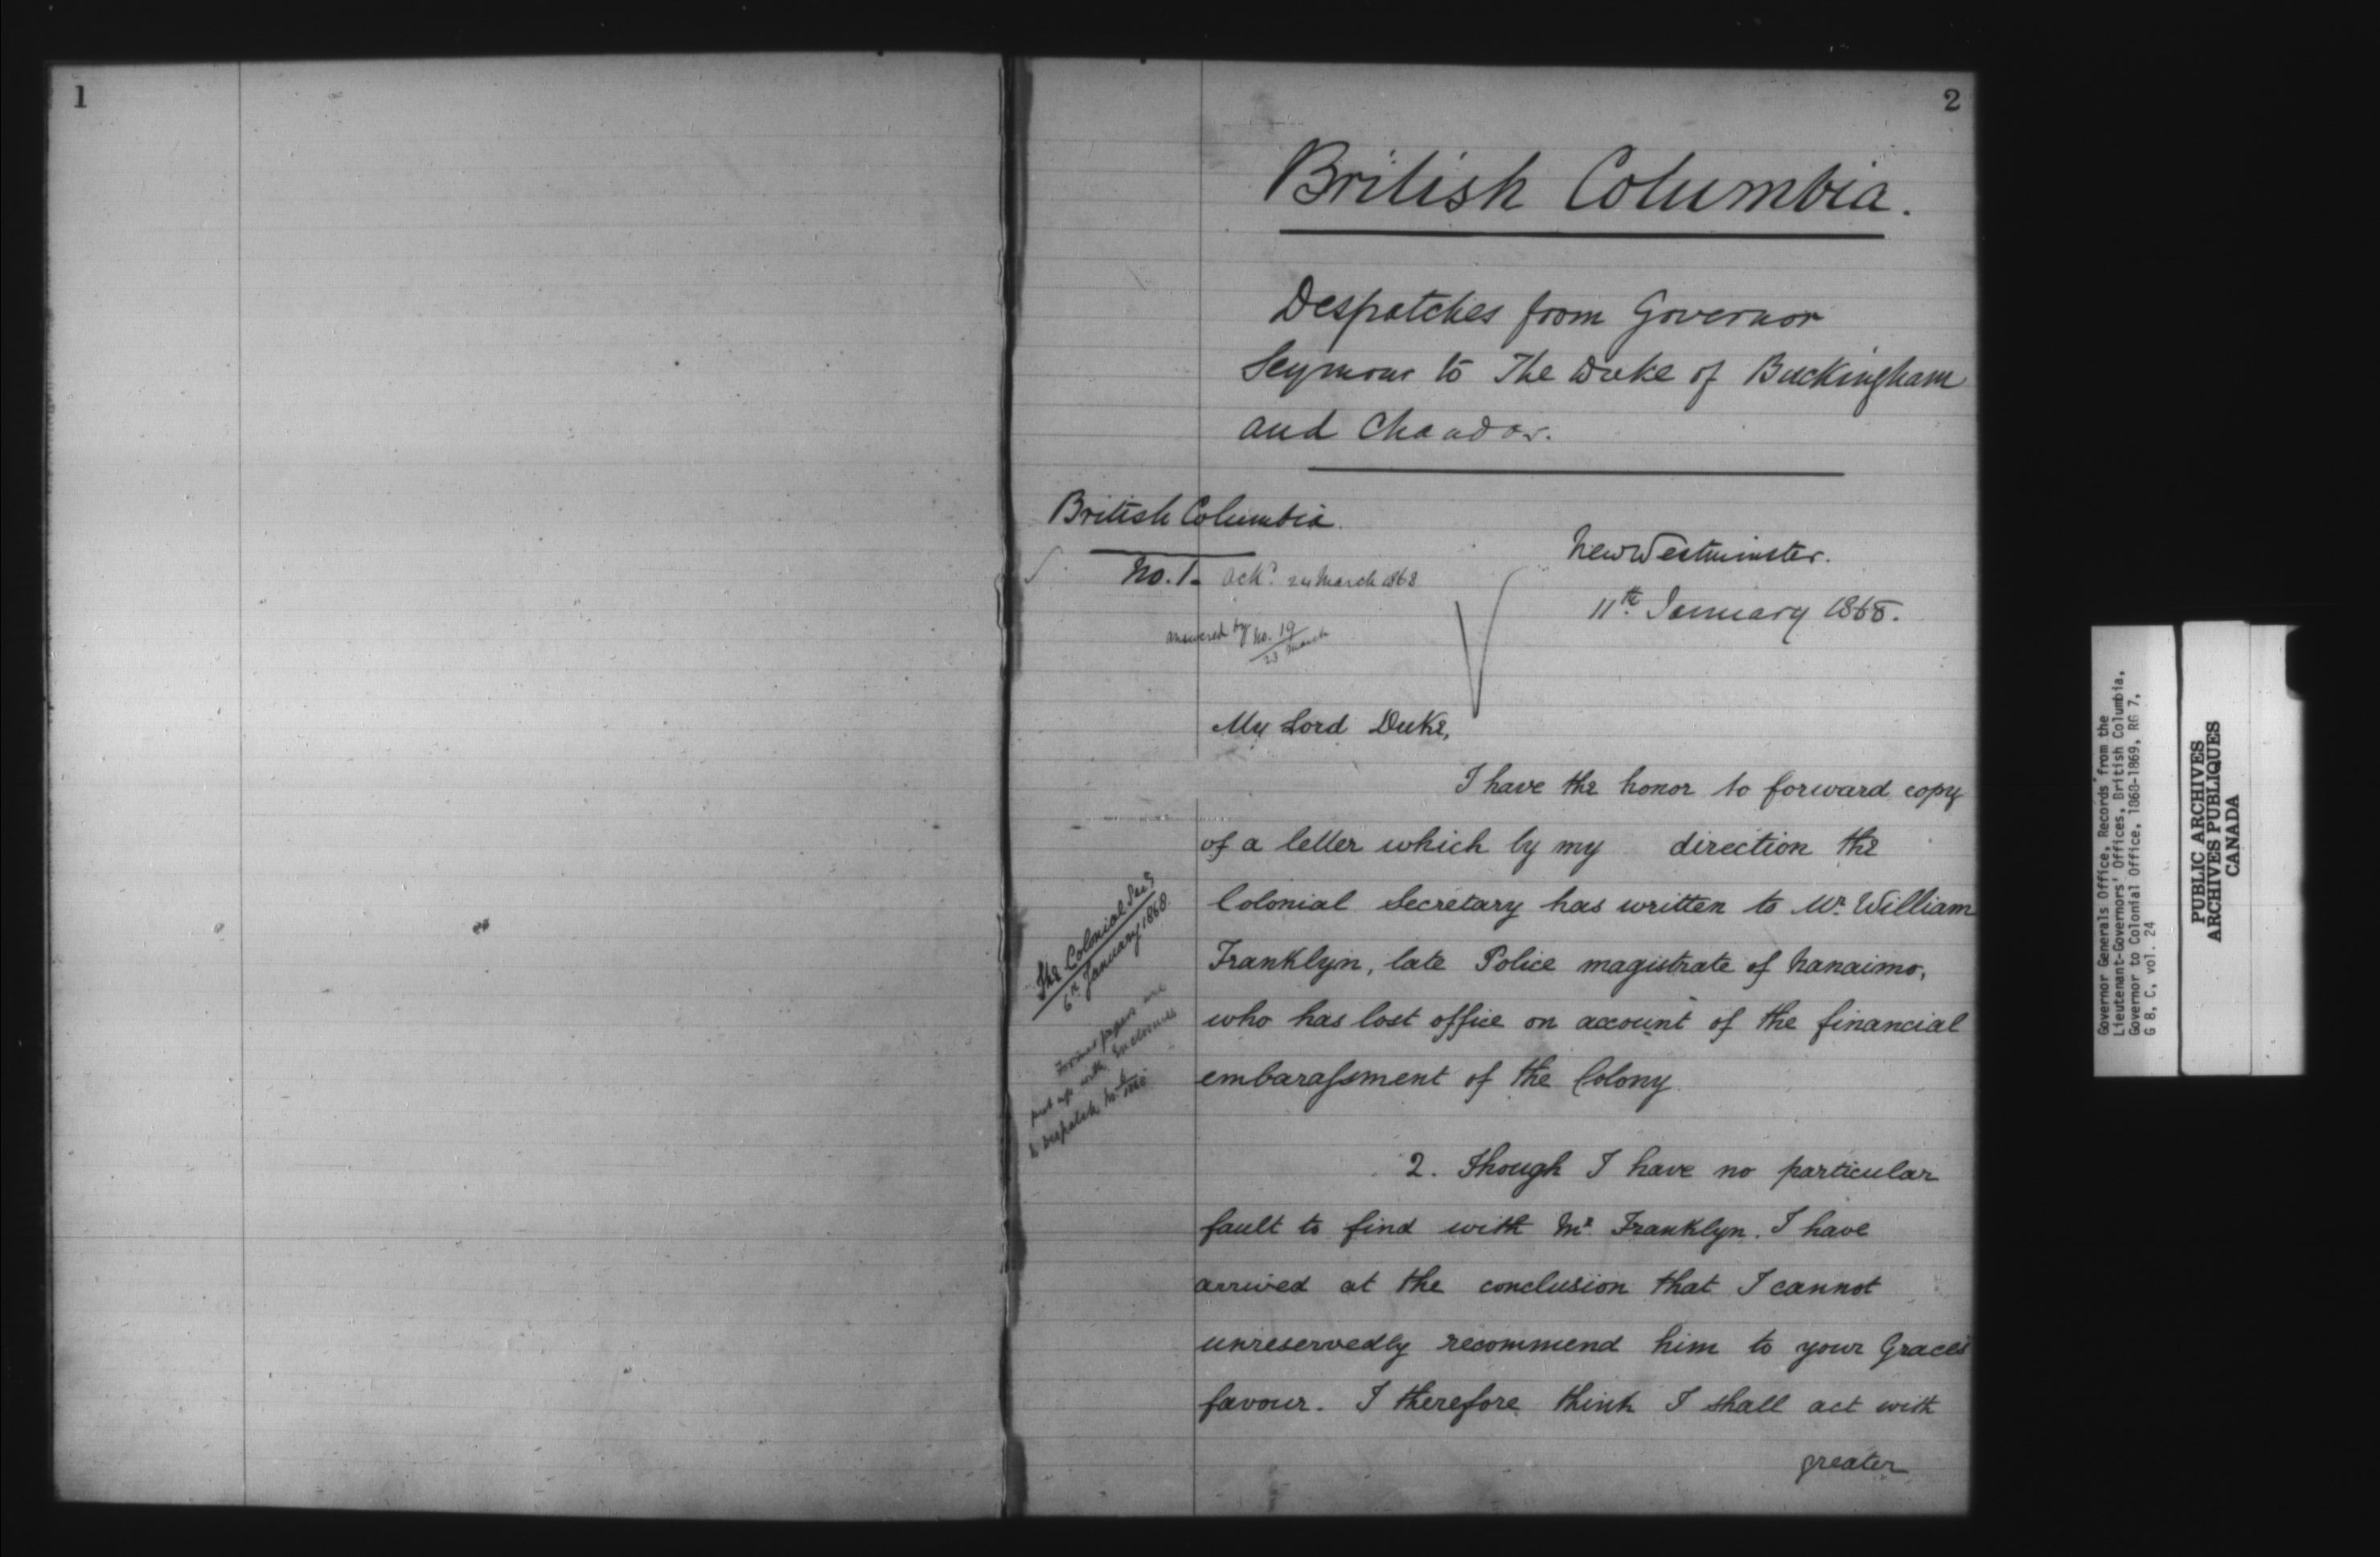 1
2
British Columbia.
Despatches from Governor
Seymour to The Duke of Buckingham
and Chandos.
British Columbia.
No. 1.
Ackd. 24 March 1868
answered by No. 19
23 March
New Westminster.
11th January 1868.
My Lord Duke,
I have the honor to forward copy
of a letter which by my direction the
Colonial Secretary has written to Mr. William
Franklyn, late Police magistrate of Nanaimo,
who has lost office on account of the financial
embarassment of the Colony.
The Colonial Secy
6th January 1868.
Former papers are
put up with Enclosures
to Despatch No.
2. Though I have no particular
fault to find with Mr. Franklyn. I have
arrived at the conclusion that I cannot
unreservedly recommend him to your Grace's
favour. I therefore think I shall act with
greater
Governor Generals Office, Records from the
Lieutenant-Governors' Offices, British Columbia,
Governor to Colonial Office, 1868-1869, RG 7,
G 8, C, vol. 24
PUBLIC ARCHIVES
ARCHIVES PUBLIQUES
CANADA